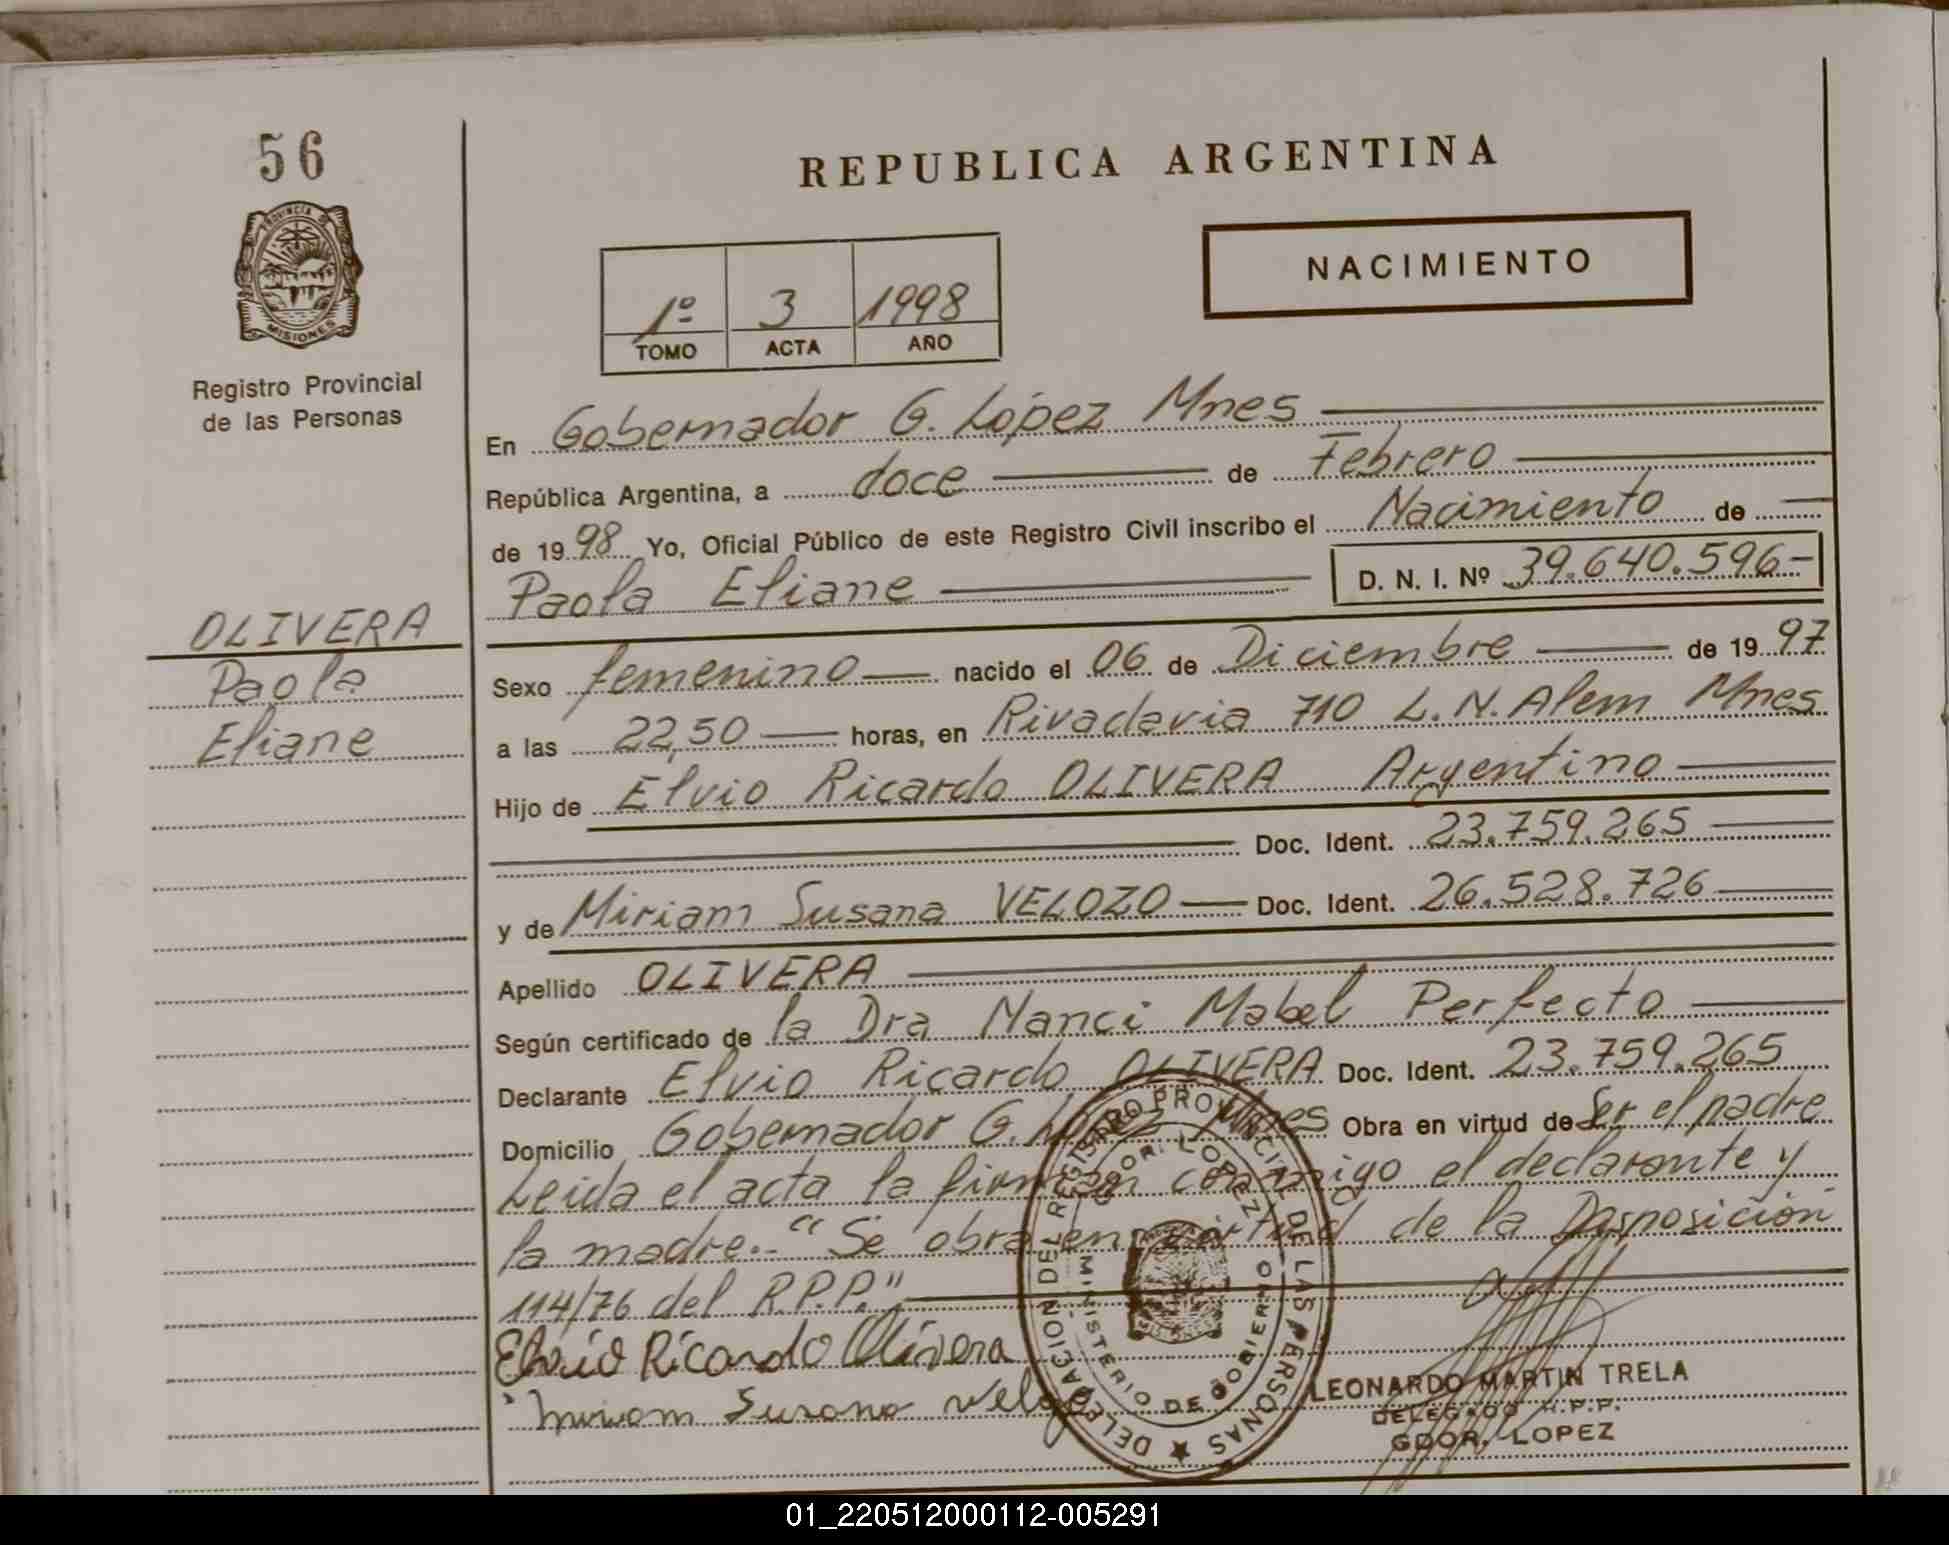 56
REPUBLICA ARGENTINA
PROVINCIA DE
MISIONES
Registro Provincial
de las Personas
1º 3 1998
TOMO ACTA AÑO
NACIMIENTO
En Gobernador G. López Mnes
República Argentina, a doce de Febrero
de 1998 Yo, Oficial Público de este Registro Civil inscribo el Nacimiento de
Paola Eliane D. N. I. Nº 39.640.596-
OLIVERA
Paola
Eliane
Sexo femenino nacido el 06 de Diciembre de 1997
a las 22,50 horas, en Rivadavia 710 L.N. Alem Mnes
Hijo de Elvio Ricardo OLIVERA Argentino
Doc. Ident. 23.759.265
y de Miriam Susana VELOZO Doc. Ident. 26.528.726
Apellido OLIVERA
Según certificado de la Dra Nanci Mabel Perfecto
Declarante Elvio Ricardo OLIVERA Doc. Ident. 23.759.265
Domicilio Gobernador G. López Mnes Obra en virtud de Ser el padre
Leida el acta la firman conmigo el declarante y
la madre.- "Se obra en virtud de la Disposición
114/76 del R.P.P."
Elvio Ricardo Olivera
Miriam Susana Velozo
DELEGACION DEL REGISTRO PROVINCIAL DE LAS PERSONAS
GDOR. LOPEZ
MINISTERIO DE GOBIERNO
MISIONES
LEONARDO MARTIN TRELA
DELEGADO R.P.P.
GDOR. LOPEZ
01_220512000112-005291